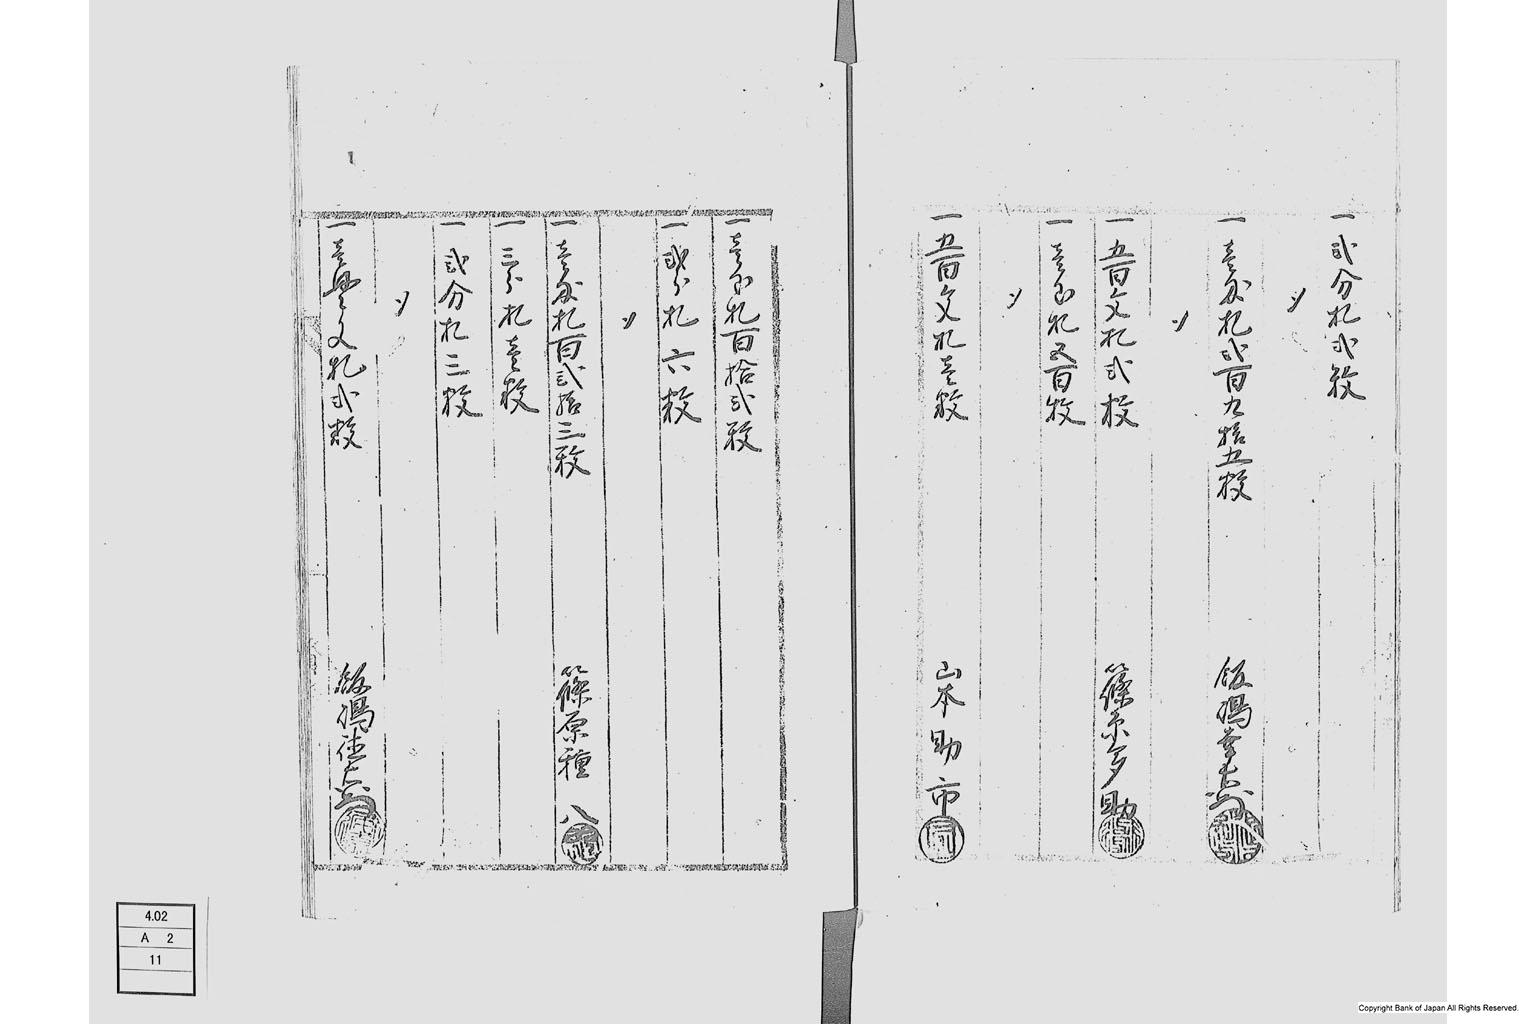 一弐分札弐枚
〆
一壱分札弐百九拾五枚
飯嶋
〆
一五百文札弐枚
篠原多助
一壱分札五百枚
〆
一五百文札壱枚
山本助市
一壱分札百拾弐枚
一弐分札六枚
〆
一壱分札百弐拾三枚
篠原種八
一三分札壱枚
一弐分札三枚
〆
一壱貫文札弐枚
飯嶋
4.02
A 2
11
Copyright Bank of Japan All Rights Reserved.